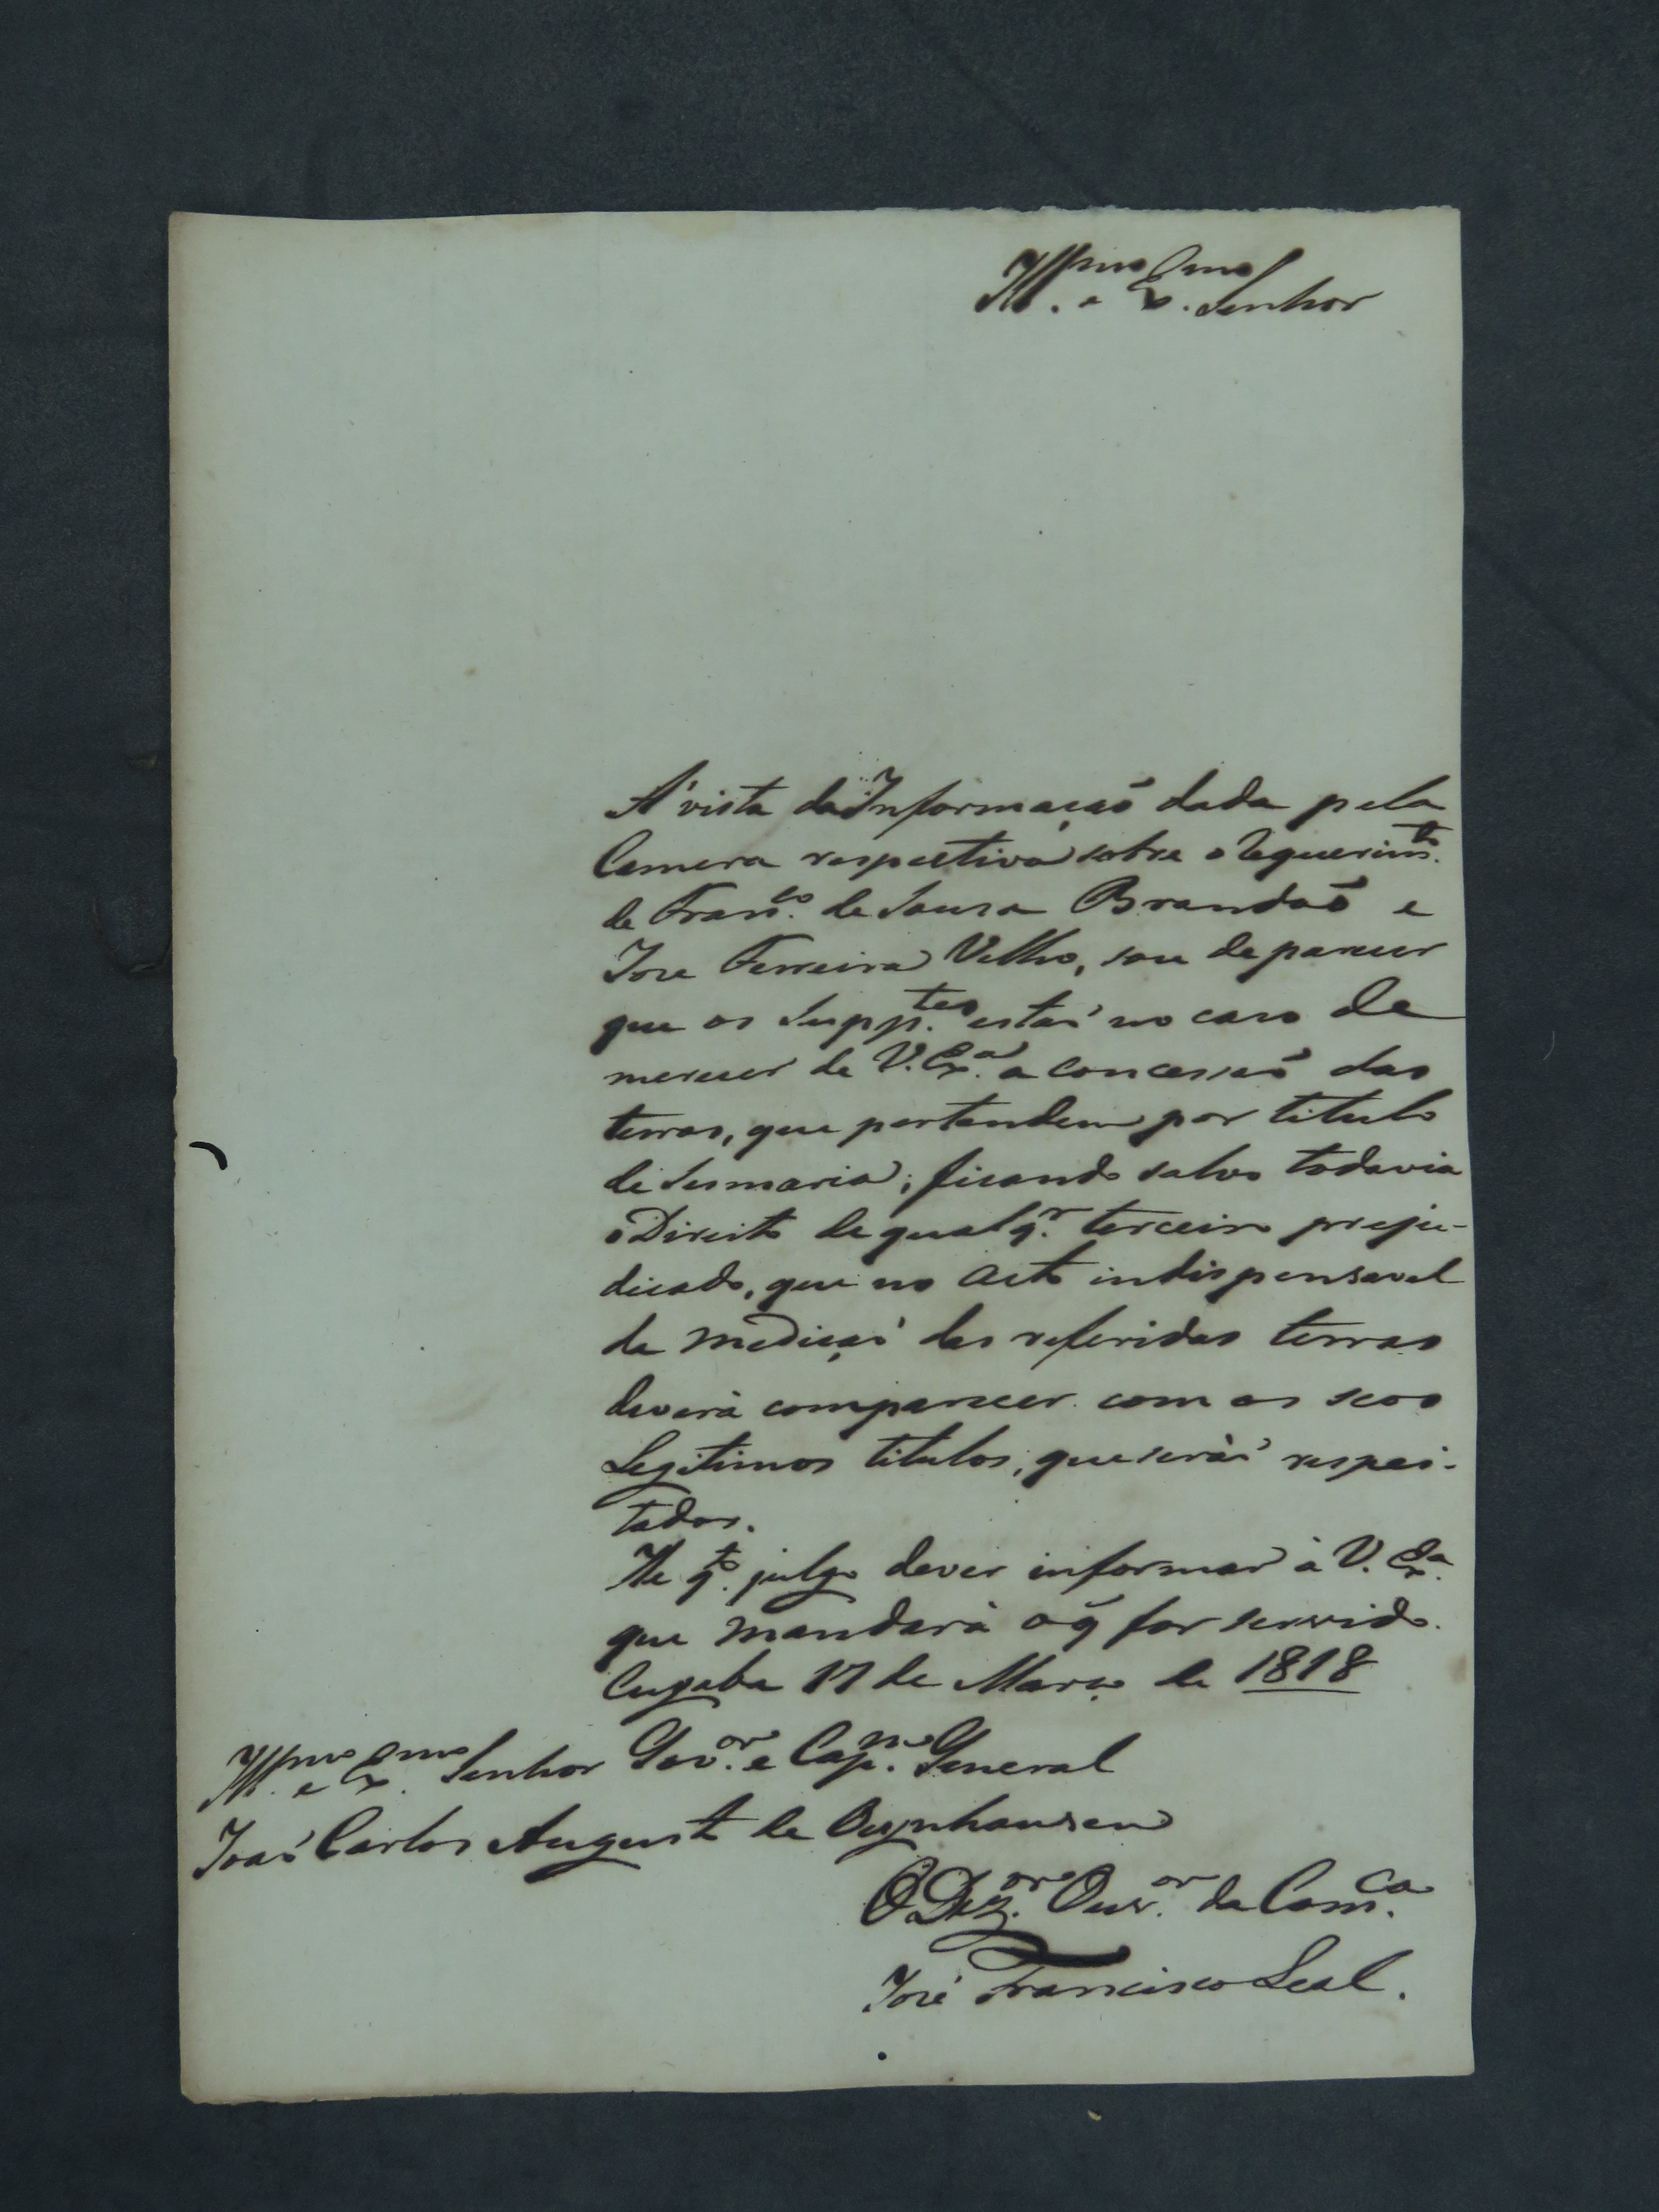 Ill.mo e Ex.mo Senhor
A' vista da Informaçaõ dada pela
Camera respectiva sobre o Requerim.to
de Fran.co de Sousa Brandaõ e
Jose Ferreira Velho, sou de parecer
que os Supp.tes estaõ no caso de
merecer de V. Ex.a a concessaõ das
terras, que pertendem por titulo
de Sesmaria; ficando salvo todavia
o Direito de qualq.r terceiro preju-
dicado, que no acto indispensavel
da Mediçaõ das referidas terras
deverà comparecer com os seos
Legitimos titulos, que seraõ respei-
tados.
He q.to julgo dever informar à V. Ex.a
que mandarà o q̃ for servido.
Cuyaba 17 de Março de 1818
Ill.mo e Ex.mo Senhor Gov.or e Cap.m General
Joaõ Carlos Augusto de Oeynhausen
O Dez.or Ouv.or da Com.ca
José Francisco Leal.